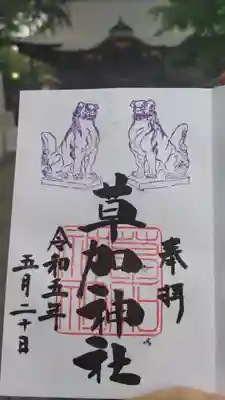 奉拝
草加神社
令和五年
五月二十日